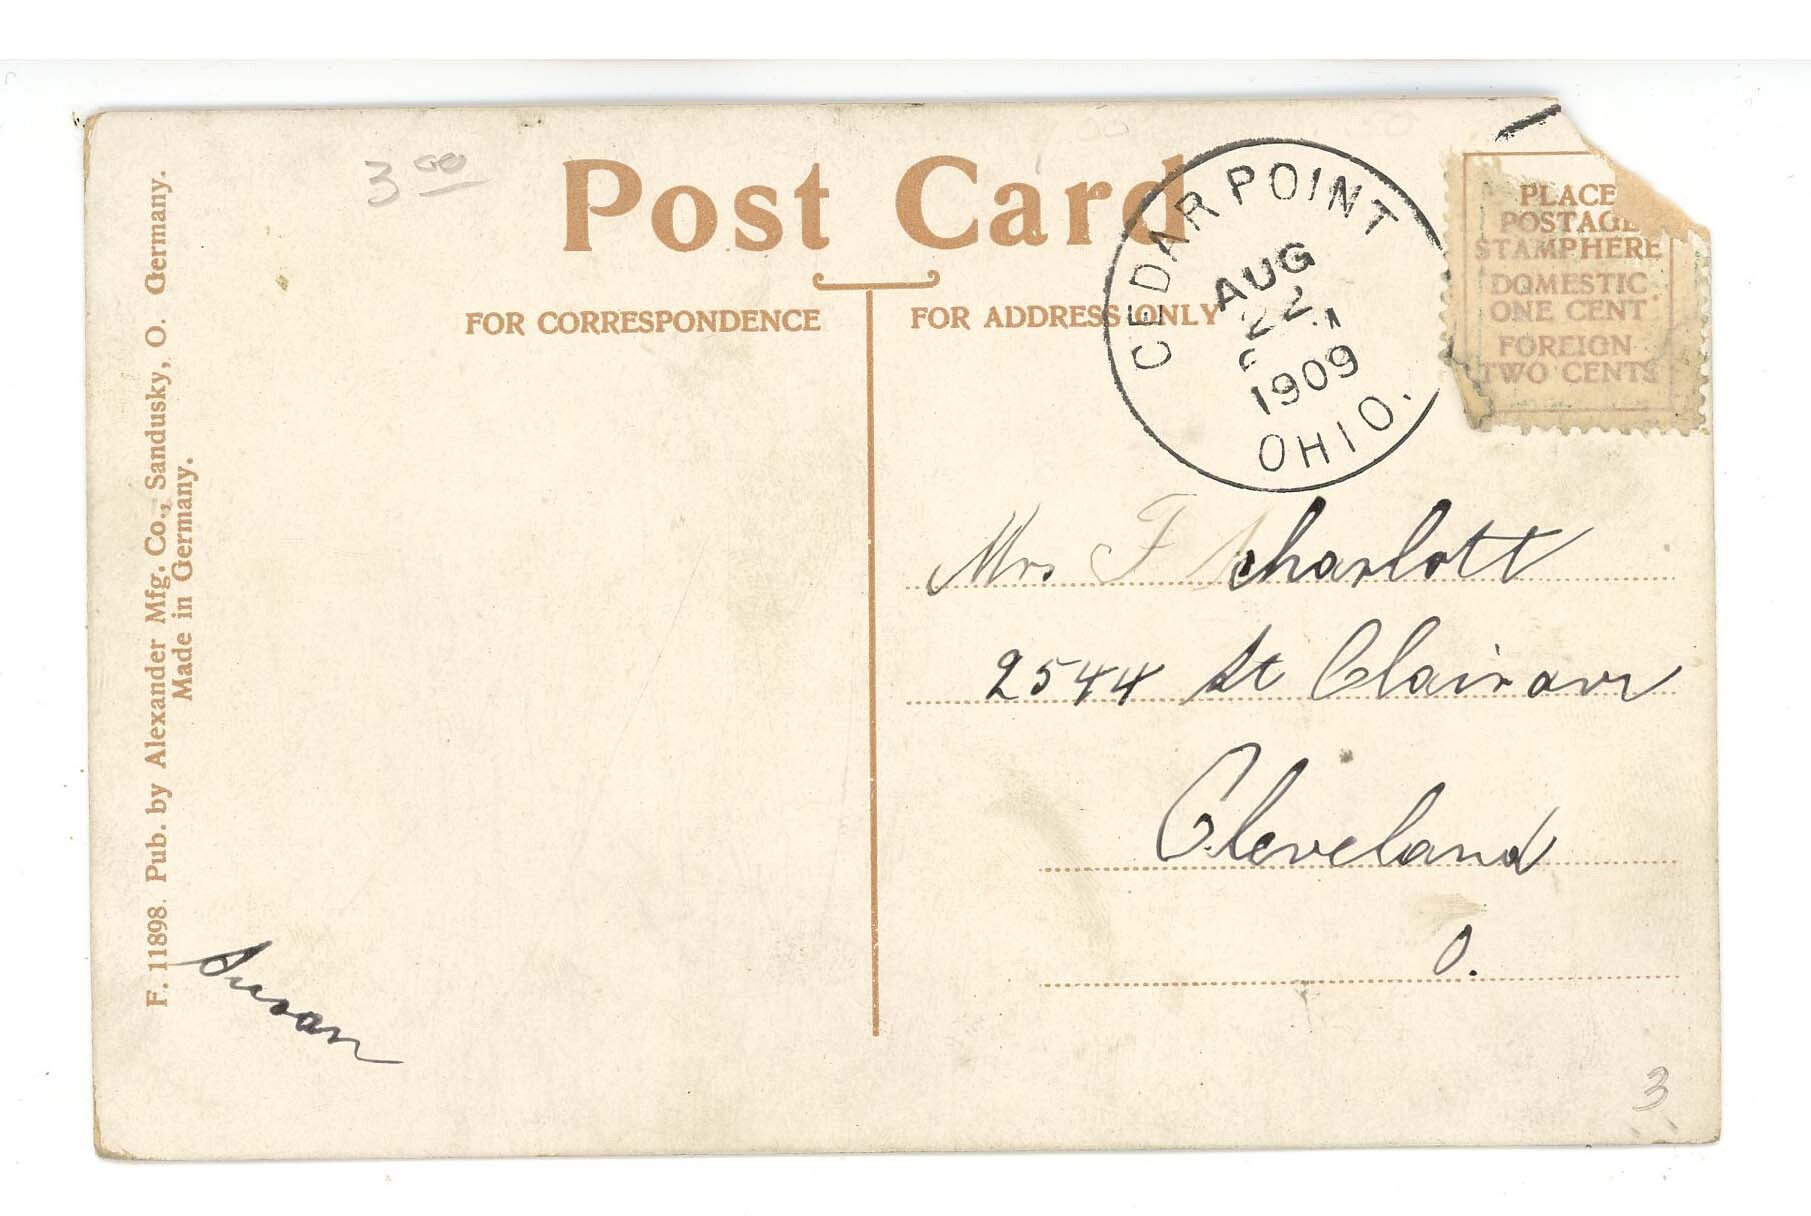 3 00
Post Card
FOR CORRESPONDENCE
FOR ADDRESS ONLY
CEDAR POINT
AUG
22
1909
OHIO.
PLACE
POSTAGE
STAMP HERE
DOMESTIC
ONE CENT
FOREIGN
TWO CENTS
Mrs F charlott
2544 St Clair ave
Cleveland
O.
Susan
F. 11898. Pub. by Alexander Mfg. Co., Sandusky, O. Germany.
Made in Germany.
3